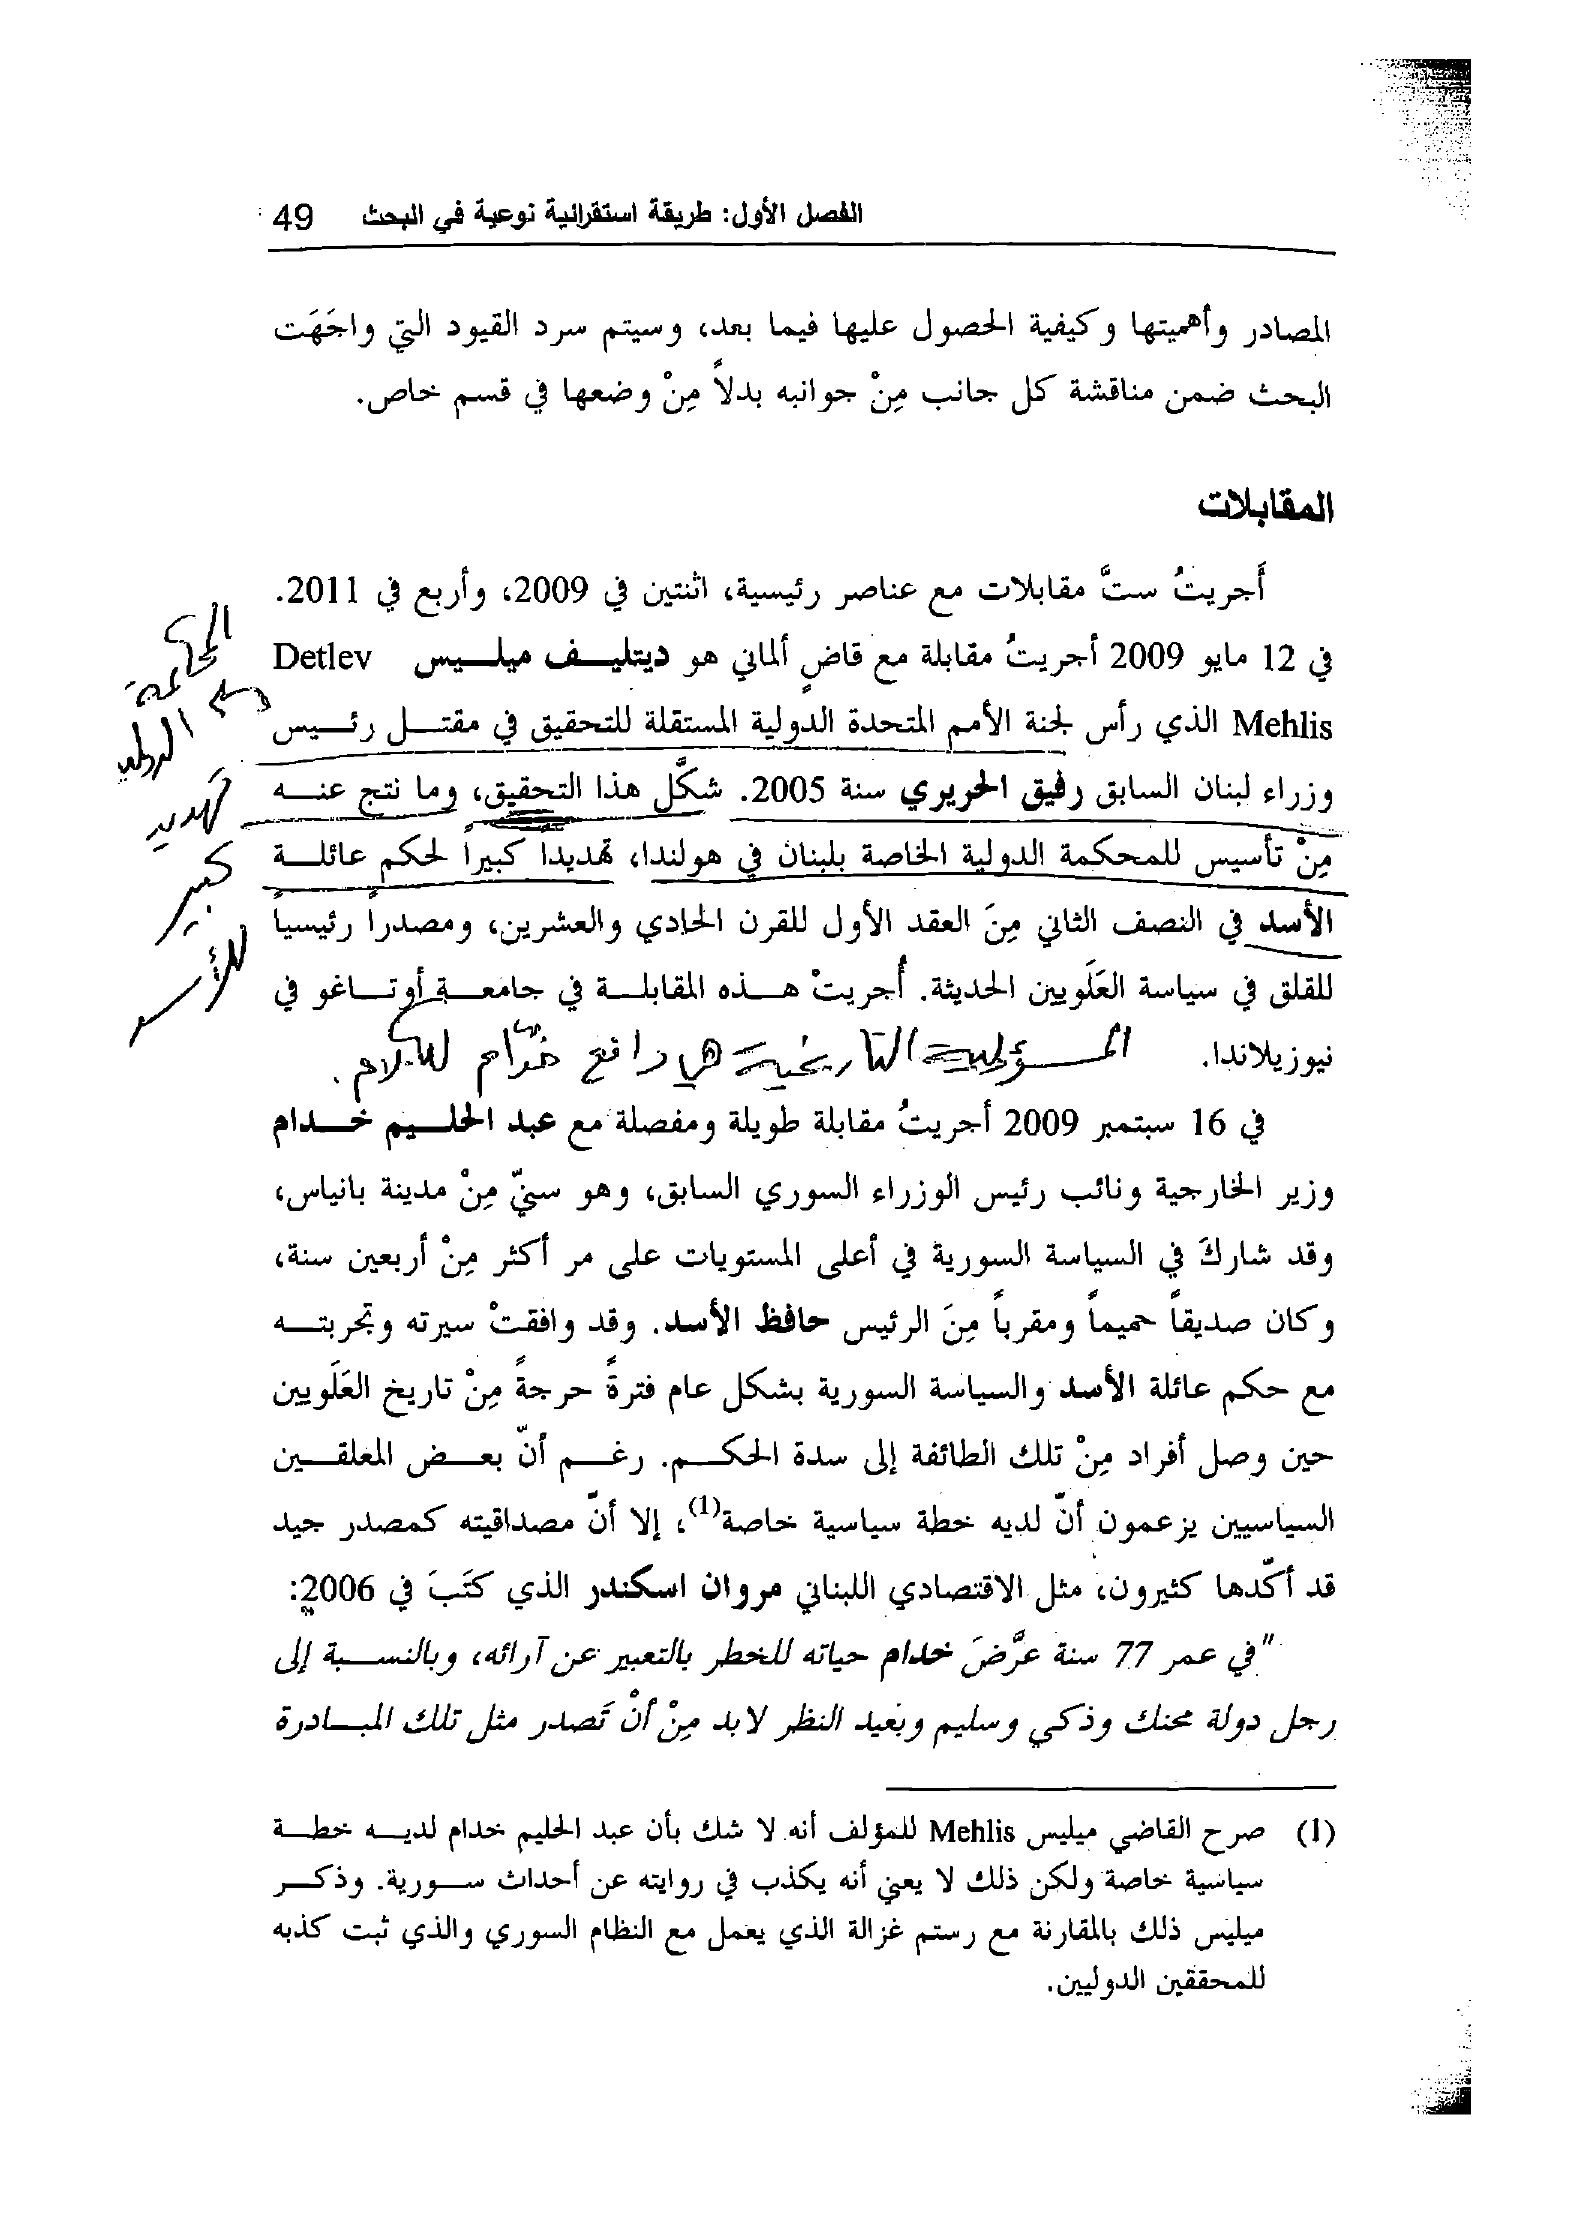 الفصل الأول: طريقة استقرائية نوعية في البحث 49
المصادر وأهميتها وكيفية الحصول عليها فيما بعد، وسيتم سرد القيود التي واجَهَت
البحث ضمن مناقشة كل جانب مِنْ جوانبه بدلاً مِنْ وضعها في قسم خاص.
المقابلات
أَجريتُ ستَّ مقابلات مع عناصر رئيسية، اثنتين في 2009، وأربع في 2011.
في 12 مايو 2009 أجريتُ مقابلة مع قاضٍ ألماني هو ديتليف ميليس Detlev
Mehlis الذي رأس لجنة الأمم المتحدة الدولية المستقلة للتحقيق في مقتل رئيس
وزراء لبنان السابق رفيق الحريري سنة 2005. شكَّل هذا التحقيق، وما نتج عنه
مِنْ تأسيس للمحكمة الدولية الخاصة بلبنان في هولندا، تهديداً كبيراً لحكم عائلة
الأسد في النصف الثاني مِنَ العقد الأول للقرن الحادي والعشرين، ومصدراً رئيسياً
للقلق في سياسة العَلَويين الحديثة. أُجريتْ هذه المقابلة في جامعة أوتاغو في
نيوزيلاندا.
المسؤولية التاريخية هي دافع خدّام للكلام.
المحكمة
الدولية
تهديد
كبير
للأسد
في 16 سبتمبر 2009 أجريتُ مقابلة طويلة ومفصلة مع عبد الحليم خدام
وزير الخارجية ونائب رئيس الوزراء السوري السابق، وهو سنيّ مِنْ مدينة بانياس،
وقد شاركَ في السياسة السورية في أعلى المستويات على مر أكثر مِنْ أربعين سنة،
وكان صديقاً حميماً ومقرباً مِنَ الرئيس حافظ الأسد. وقد وافقتْ سيرته وتجربته
مع حكم عائلة الأسد والسياسة السورية بشكل عام فترةً حرجةً مِنْ تاريخ العَلَويين
حين وصل أفراد مِنْ تلك الطائفة إلى سدة الحكم. رغم أنّ بعض المعلقين
السياسيين يزعمون أنّ لديه خطة سياسية خاصة(1)، إلا أنّ مصداقيته كمصدر جيد
قد أكّدها كثيرون، مثل الاقتصادي اللبناني مروان اسكندر الذي كتَبَ في 2006:
"في عمر 77 سنة عرَّضَ خدام حياته للخطر بالتعبير عن آرائه، وبالنسبة إلى
رجل دولة محنك وذكي وسليم وبعيد النظر لابد مِنْ أنْ تَصدر مثل تلك المبادرة
(1) صرح القاضي ميليس Mehlis للمؤلف أنه لا شك بأن عبد الحليم خدام لديه خطة
سياسية خاصة ولكن ذلك لا يعني أنه يكذب في روايته عن أحداث سورية. وذكر
ميليس ذلك بالمقارنة مع رستم غزالة الذي يعمل مع النظام السوري والذي ثبت كذبه
للمحققين الدوليين.